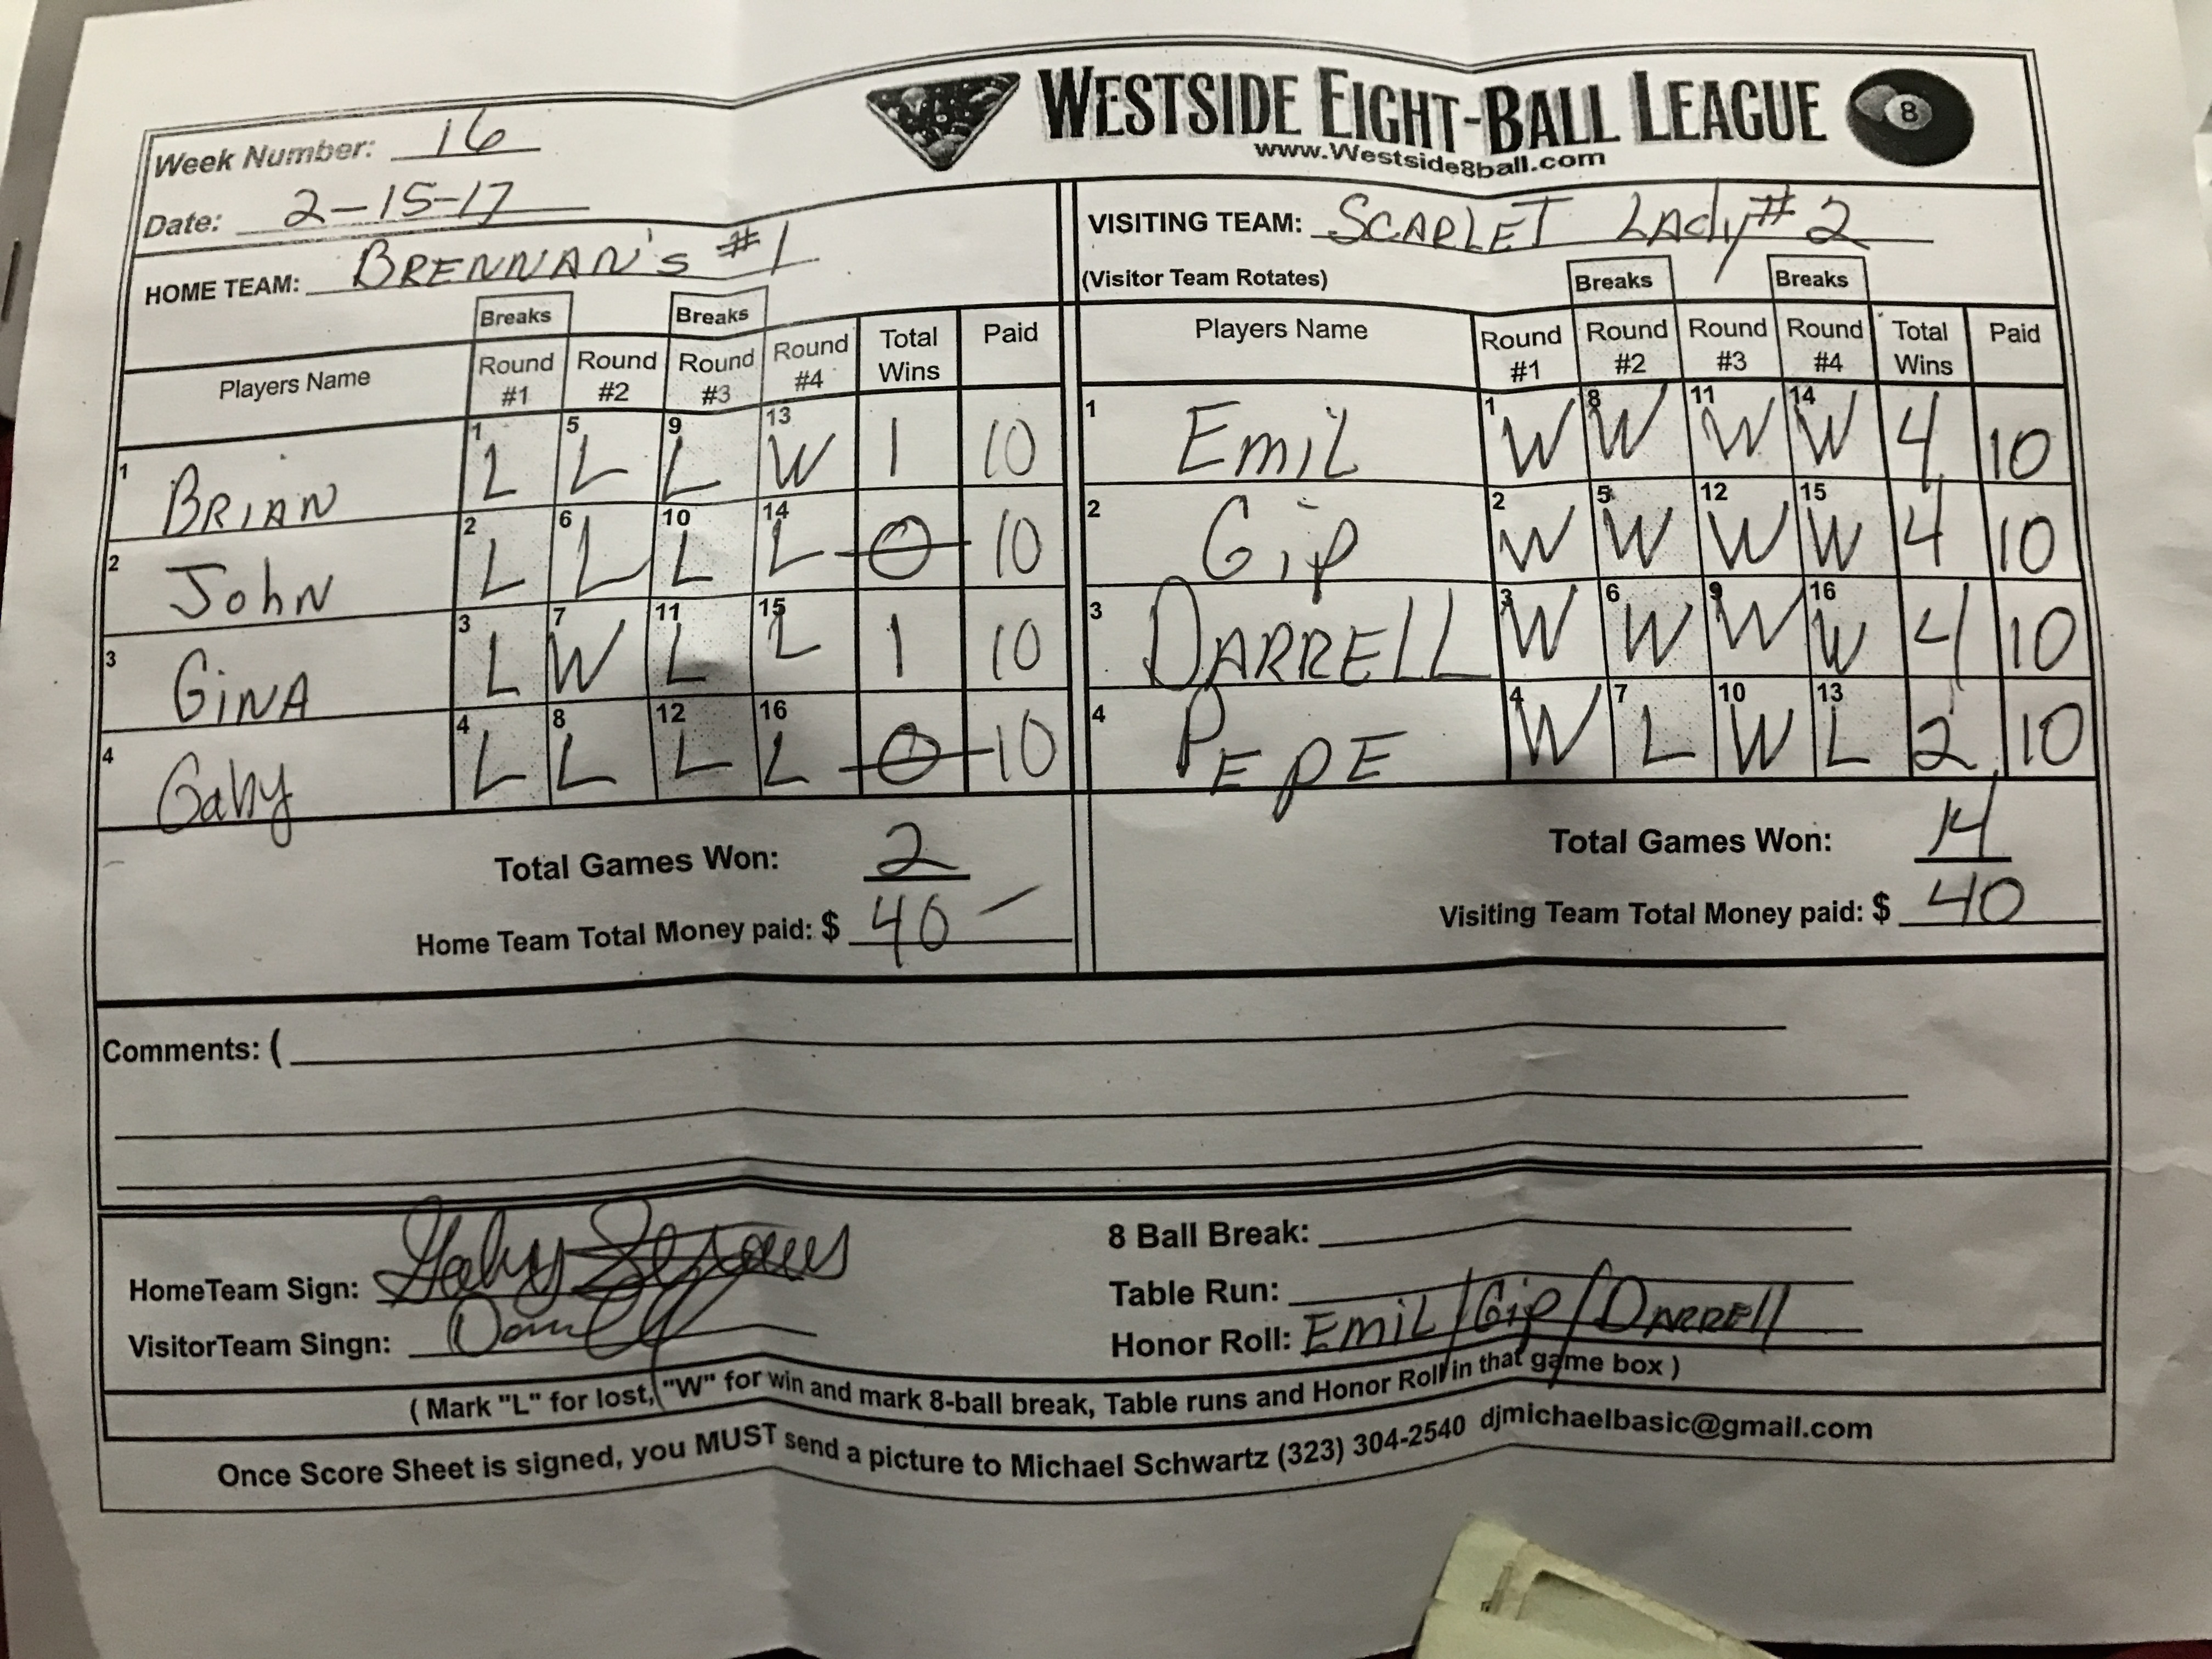 WESTSIDE EIGHT-BALL LEAGUE 8
www.Westside8ball.com
Week Number: 16
Date: 2-15-17
HOME TEAM: BRENNAN's #1
VISITING TEAM: SCARLET LAdy #2
(Visitor Team Rotates)
Breaks Breaks
Players Name Round #1 Round #2 Round #3 Round #4 Total Wins Paid
1 BRIAN 1 L 5 L 9 L 13 W 1 10
2 JohN 2 L 6 L 10 L 14 L 0 10
3 GiNA 3 L 7 W 11 L 15 L 1 10
4 Gaby 4 L 8 L 12 L 16 L 0 10
Total Games Won: 2
Home Team Total Money paid: $ 40
Breaks Breaks
Players Name Round #1 Round #2 Round #3 Round #4 Total Wins Paid
1 EmiL 1 W 8 W 11 W 14 W 4 10
2 Gip 2 W 5 W 12 W 15 W 4 10
3 DARRELL 3 W 6 W 9 W 16 W 4 10
4 PEPE 4 W 7 L 10 W 13 L 2 10
Total Games Won: 14
Visiting Team Total Money paid: $ 40
Comments: (
HomeTeam Sign: Gaby
VisitorTeam Singn:
8 Ball Break:
Table Run:
Honor Roll: EmiL/Gip/DARRELL
( Mark "L" for lost, "W" for win and mark 8-ball break, Table runs and Honor Roll in that game box )
Once Score Sheet is signed, you MUST send a picture to Michael Schwartz (323) 304-2540 djmichaelbasic@gmail.com